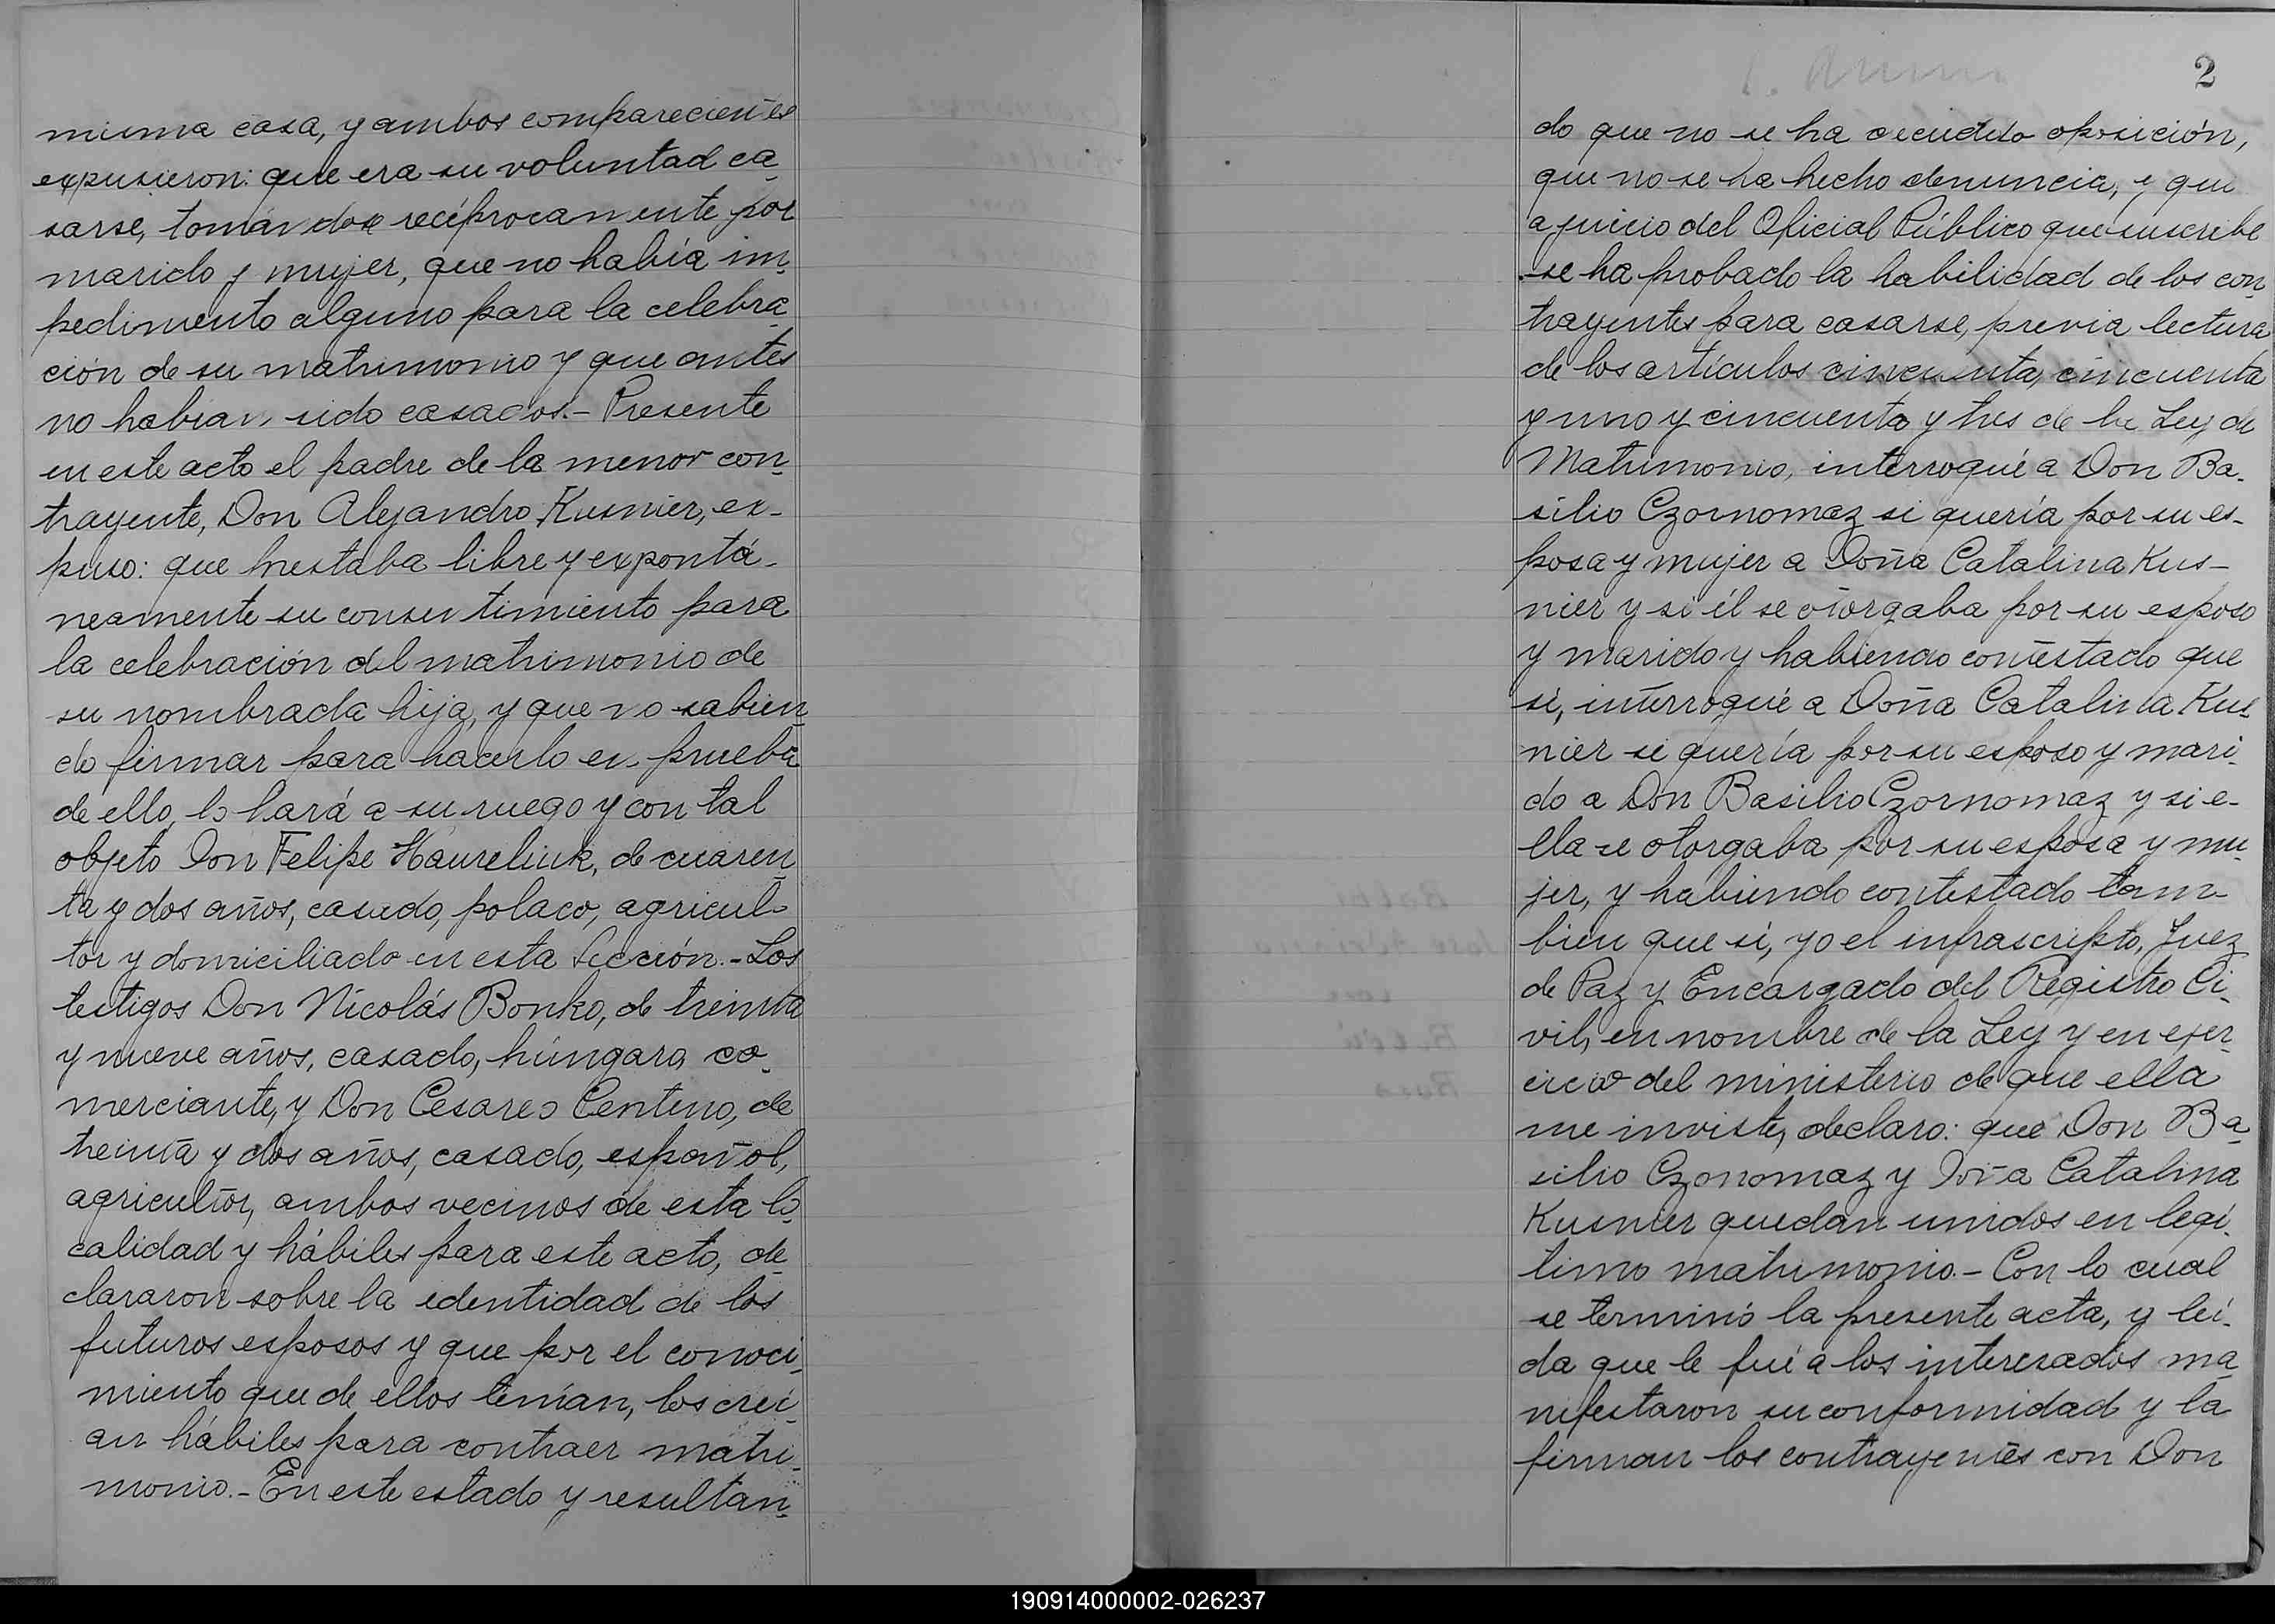 misma casa, y ambos comparecientes
expusieron: que era su voluntad ca
sarse, tomándose recíprocamente por
marido y mujer, que no había im
pedimento alguno para la celebra
ción de su matrimonio y que antes
no habían sido casados.- Presente
en este acto el padre de la menor con
trayente, Don Alejandro Kusnier, ex-
puso: que prestaba libre y expontá-
neamente su consentimiento para
la celebración del matrimonio de
su nombrada hija, y que no sabien
do firmar para hacerlo en prueba
de ello, lo hará a su ruego y con tal
objeto Don Felipe Haureliuk, de cuaren
ta y dos años, casado, polaco, agricul-
tor y domiciliado en esta Sección.- Los
testigos Don Nicolás Bonko, de treinta
y nueve años, casado, húngaro, co-
merciante, y Don Cesareo Centeno, de
treinta y dos años, casado, español,
agricultor, ambos vecinos de esta lo
calidad y hábiles para este acto, de
clararon sobre la identidad de los
futuros esposos y que por el conoci
miento que de ellos tenían, los creí
an hábiles para contraer matri
monio.- En este estado y resultan
2
do que no se ha deducido oposición,
que no se ha hecho denuncia, y que
a juicio del Oficial Público que suscribe
se ha probado la habilidad de los con
trayentes para casarse, previa lectura
de los artículos cincuenta, cincuenta
y uno y cincuenta y tres de la Ley de
Matrimonio, interrogué a Don Ba-
silio Czornomaz si quería por su es-
posa y mujer a Doña Catalina Kus-
nier y si él se otorgaba por su esposo
y marido y habiendo contestado que
sí, interrogué a Doña Catalina Kus
nier si quería por su esposo y mari-
do a Don Basilio Czornomaz y si e-
lla se otorgaba por su esposa y mu
jer, y habiendo contestado tam-
bien que sí, yo el infrascripto, Juez
de Paz y Encargado del Registro Ci-
vil, en nombre de la Ley y en ejer
cicio del ministerio de que ella
me inviste, declaro: que Don Ba
silio Czonomaz y Doña Catalina
Kusnier quedan unidos en legí-
timo matrimonio.- Con lo cual
se terminó la presente acta, y leí-
da que le fué a los interesados ma
nifestaron su conformidad y la
firman los contrayentes con Don
190914000002-026237